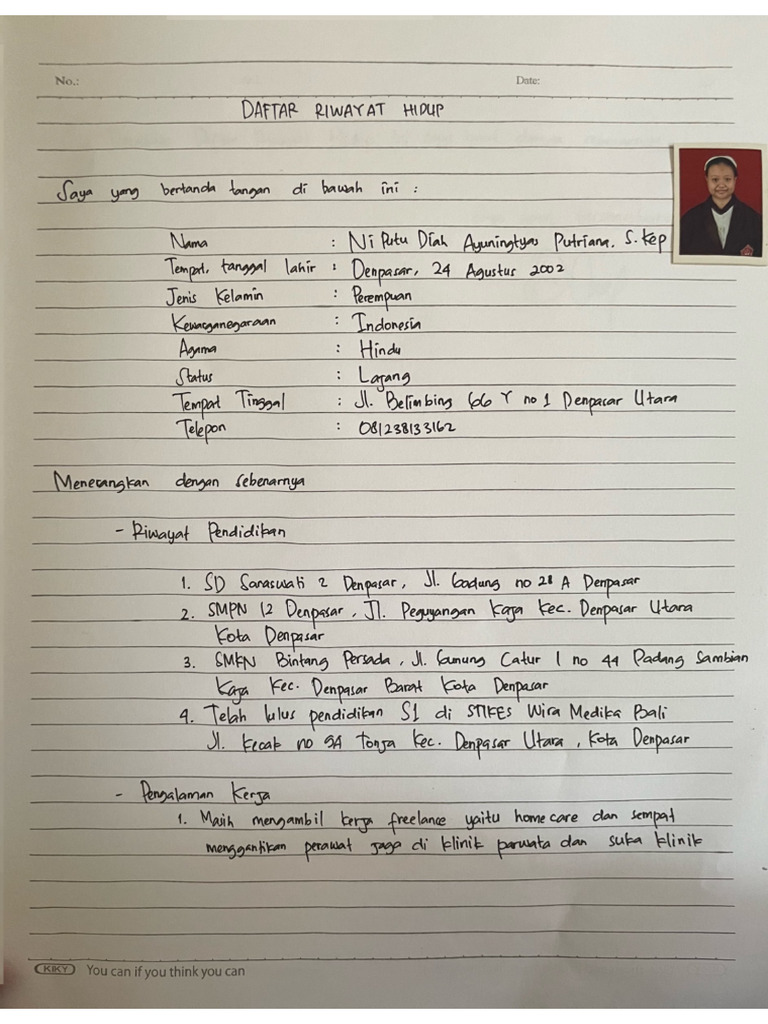 No.: Date:
DAFTAR RIWAYAT HIDUP
Saya yang bertanda tangan di bawah ini :
Nama : Ni Putu Diah Ayuningtyas Putriana. S.Kep
Tempat, tanggal lahir : Denpasar, 24 Agustus 2002
Jenis Kelamin : Perempuan
Kewarganegaraan : Indonesia
Agama : Hindu
Status : Lajang
Tempat Tinggal : Jl. Belimbing 66 Y no 1 Denpasar Utara
Telepon : 081238133162
Menerangkan dengan sebenarnya
- Riwayat Pendidikan
1. SD Saraswati 2 Denpasar, Jl. Gadung no 28 A Denpasar
2. SMPN 12 Denpasar, Jl. Peguyangan Kaja Kec. Denpasar Utara
Kota Denpasar
3. SMKN Bintang Persada, Jl. Gunung Catur 1 no 44 Padang Sambian
Kaja Kec. Denpasar Barat Kota Denpasar
4. Telah lulus pendidikan S1 di STIKES Wira Medika Bali
Jl. Kecak no 9A Tonja Kec. Denpasar Utara, Kota Denpasar
- Pengalaman Kerja
1. Masih mengambil kerja freelance yaitu homecare dan sempat
menggantikan perawat jaga di klinik parwata dan suka klinik
KIKY You can if you think you can